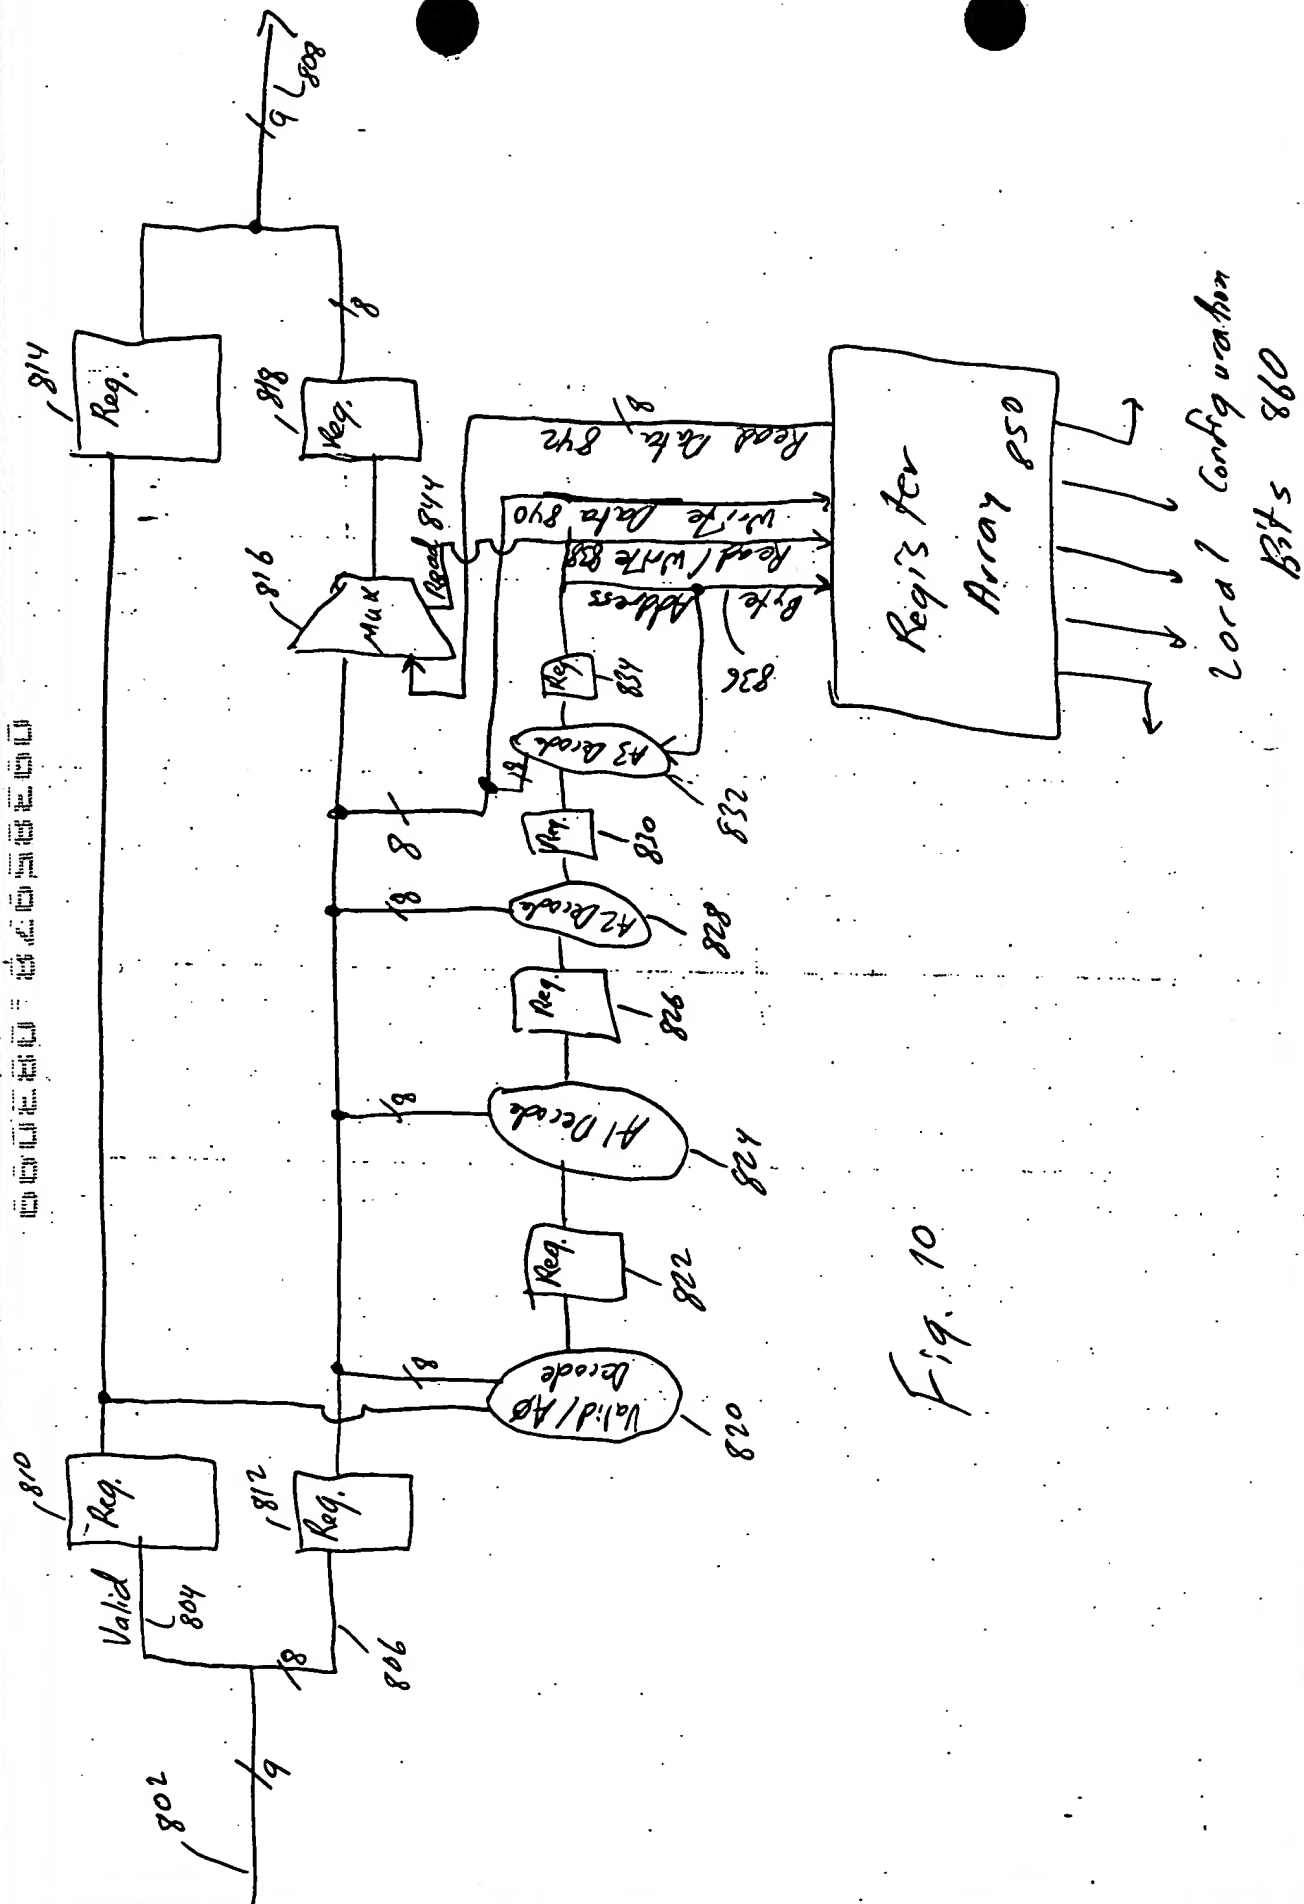 802
9
Valid
804
8
806
810
Reg.
812
Reg.
8
Valid / AØ
Decode
820
Reg.
822
8
A1 Decode
824
Reg.
826
8
A2 Decode
828
Reg.
830
8
8
A3 Decode
832
Reg
834
816
MUX
Read 844
Byte
Address
836
Read / Write 838
Write Data 840
Read Data
842
8
814
Reg.
818
Reg.
8
9
808
Register
Array
850
Local Configuration
Bits 860
Fig. 10